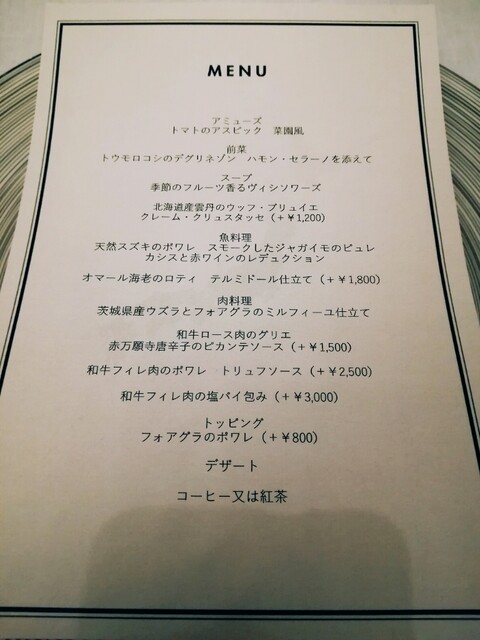 MENU
アミューズ
トマトのアスピック　菜園風
前菜
トウモロコシのデグリネゾン　ハモン・セラーノを添えて
スープ
季節のフルーツ香るヴィシソワーズ
北海道産雲丹のウッフ・ブリュイエ
クレーム・クリュスタッセ（＋￥1,200）
魚料理
天然スズキのポワレ　スモークしたジャガイモのピュレ
カシスと赤ワインのレデュクション
オマール海老のロティ　テルミドール仕立て（＋￥1,800）
肉料理
茨城県産ウズラとフォアグラのミルフィーユ仕立て
和牛ロース肉のグリエ
赤万願寺唐辛子のピカンテソース（＋￥1,500）
和牛フィレ肉のポワレ　トリュフソース（＋￥2,500）
和牛フィレ肉の塩パイ包み（＋￥3,000）
トッピング
フォアグラのポワレ（＋￥800）
デザート
コーヒー又は紅茶